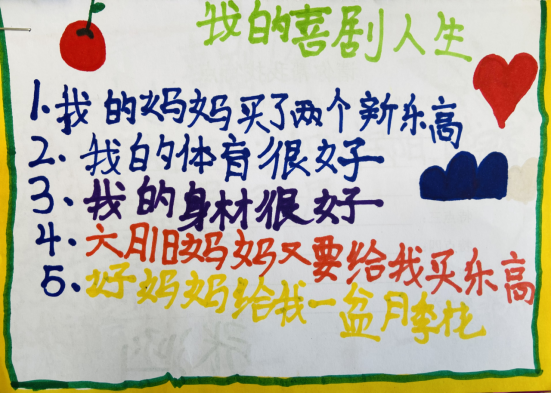 我的喜剧人生
1.我的妈妈买了两个新乐高
2.我的体育很好
3.我的身材很好
4.六月1日妈妈又要给我买乐高
5.好妈妈给我一盆月季花